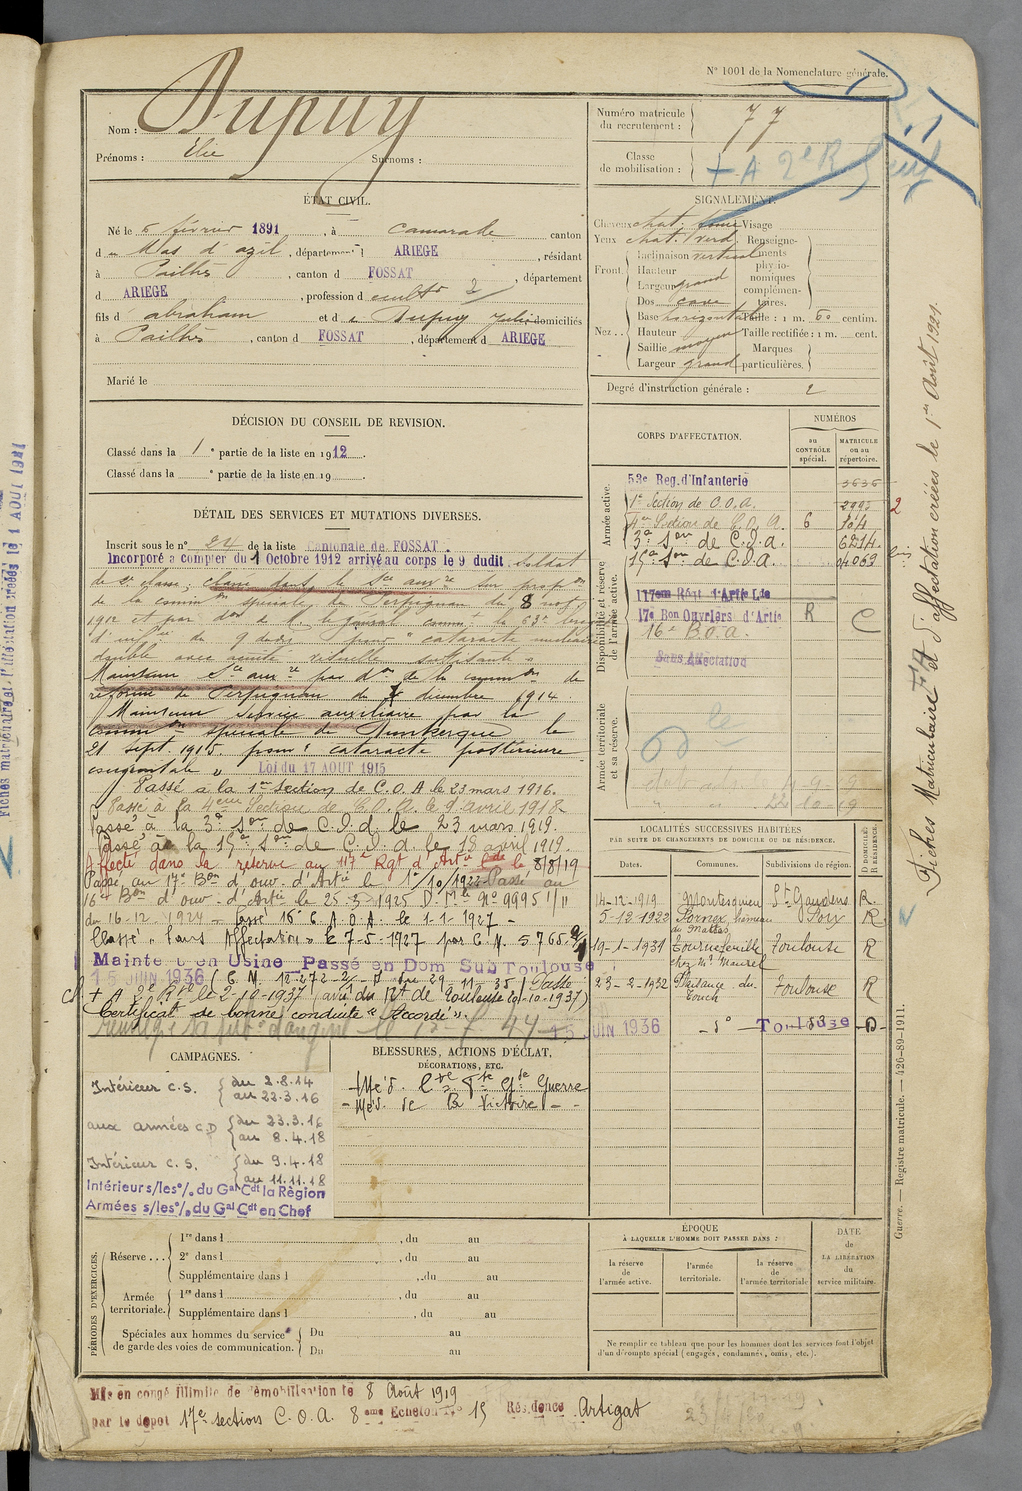 N° 1001 de la Nomenclature générale.
Nom : Dupuy
Prénoms : Elie Surnoms :
Numéro matricule du recrutement : 77
Classe de mobilisation : + A 2e R
ÉTAT CIVIL.
Né le 6 février 1891, à Camarade canton
d u Mas d'azil, département ARIEGE, résidant
à Pailhès, canton d FOSSAT, département
d ARIEGE, profession d cultr 2
fils d'abraham et d e Dupuy Julie domiciliés
à Pailhès, canton d FOSSAT, département d ARIEGE
Marié le
SIGNALEMENT.
Cheveux chat. foncé Visage
Yeux chat. verd. Renseignements physionomiques complémentaires.
Front Inclinaison vertical
Hauteur
Largeur grand
Nez Dos cave
Base horizontal Taille : 1 m. 60 centim.
Hauteur moyen Taille rectifiée : 1 m. cent.
Saillie Marques
Largeur grand particulières.
Degré d'instruction générale : 2
DÉCISION DU CONSEIL DE REVISION.
Classé dans la 1e partie de la liste en 1912.
Classé dans la e partie de la liste en 19
DÉTAIL DES SERVICES ET MUTATIONS DIVERSES.
Inscrit sous le n° 24 de la liste Cantonale de FOSSAT.
Incorporé a compter du 1 Octobre 1912 arrivé au corps le 9 dudit soldat
de 2e classe, classé dans le Sce auxre sur propon
de la common spéciale de Perpignan du 8 nov.
1912 et par don de M. le général commt la 63e brig.
d'infie du 9 dudit pour "cataracte
double avec acuité visuelle suffisante"
Maintenu Sce auxre par don de la common de
réforme de Perpignan du 7 décembre 1914
Maintenu service auxiliaire par la
common spéciale de Dunkerque le
21 sept. 1915 pour "cataracte postérieure
congénitale" Loi du 17 AOUT 1915
Passé à la 1ère Section de C.O.A le 23 mars 1916.
Passé à la 4eme Section de C.O.A. le 9 avril 1918
Passé à la 3e Son de C.O.A. le 23 mars 1919.
Passé à la 17e Son de C.O.A. le 18 avril 1919.
Affecté dans la réserve au 117e Rgt d'Artie Lde le 8/8/19
Passé au 17e Bon d'ouv. d'Artie le 1er/10/1923 Passé au
16e Bon d'ouv. d'Artie le 25.3.1925 D. Mle N° 9995 1/11
du 16-12-1924 - Passé 16e C.A.O.A. le 1-1-1927 -
Classé "Sans Affectation" le 7-5-1927 par C.M. 5765.9/1
Maintenu en Usine Passé en Dom Sub Toulouse
15 JUIN 1936 (C.M. 12272 2/1-7 du 29-11-35) Passé
+ A 2e Rve le 2-10-1937 (avis du Rt de Toulouse 20-10-1937)
Certificat de bonne conduite "Accordé".
CORPS D'AFFECTATION.
NUMÉROS
au CONTRÔLE spécial.
MATRICULE ou au répertoire.
Armée active.
53e Reg. d'Infanterie 3636
1e Section de C.O.A. 2993
4e Section de C.O.A. 6 104
3e Son de C.O.A. 6214
17e Son de C.O.A. 04063
Disponibilité et réserve de l'armée active.
117eme Régt d'Artie Lde
17e Bon Ouvriers d'Artie R C
16e B.O.A.
Sans Affectation
Armée territoriale et sa réserve.
LOCALITÉS SUCCESSIVES HABITÉES
PAR SUITE DE CHANGEMENTS DE DOMICILE OU DE RÉSIDENCE.
Dates. Communes. Subdivisions de région. D DOMICILE R RÉSIDENCE
14-12-1919 Montesquieu St Gaudens R
5-12-1922 Foix R
19-1-1931 Tournefeuille chez Mr Maurel Toulouse R
23-2-1932 Plaisance du Touch Toulouse R
15 JUIN 1936 -do- Toulouse -D-
CAMPAGNES.
Intérieur C.S. du 2.8.14 au 22.3.16
aux armées C D du 23.3.16 au 8.4.18
Intérieur C.S. du 9.4.18 au 11.11.18
Intérieur s/les o/. du Gal Cdt la Région
Armées s/les o/. du Gal Cdt en Chef
BLESSURES, ACTIONS D'ÉCLAT,
DÉCORATIONS, ETC.
- Méd. Cve Fse Gde Guerre
- Méd. de la Victoire - -
PÉRIODES D'EXERCICES.
Réserve ... 1re dans l , du au
2e dans l , du au
Supplémentaire dans l , du au
Armée territoriale. 1re dans l , du au
Supplémentaire dans l , du au
Spéciales aux hommes du service de garde des voies de communication. Du au
Du au
ÉPOQUE
À LAQUELLE L'HOMME DOIT PASSER DANS :
la réserve de l'armée active.
l'armée territoriale.
la réserve de l'armée territoriale
DATE DE LA LIBÉRATION du service militaire.
Ne remplir ce tableau que pour les hommes dont les services font l'objet
d'un décompte spécial (engagés, condamnés, omis, etc.).
Mis en congé illimité de démobilisation le 8 Août 1919
par le dépot 17e section C.O.A. 8eme Echelon N° 15 Résidence Artigat
Fiches Matriculaire et d'affectation créées le 1er Août 1921.
Guerre. — Registre matricule. — 426-89-1911.